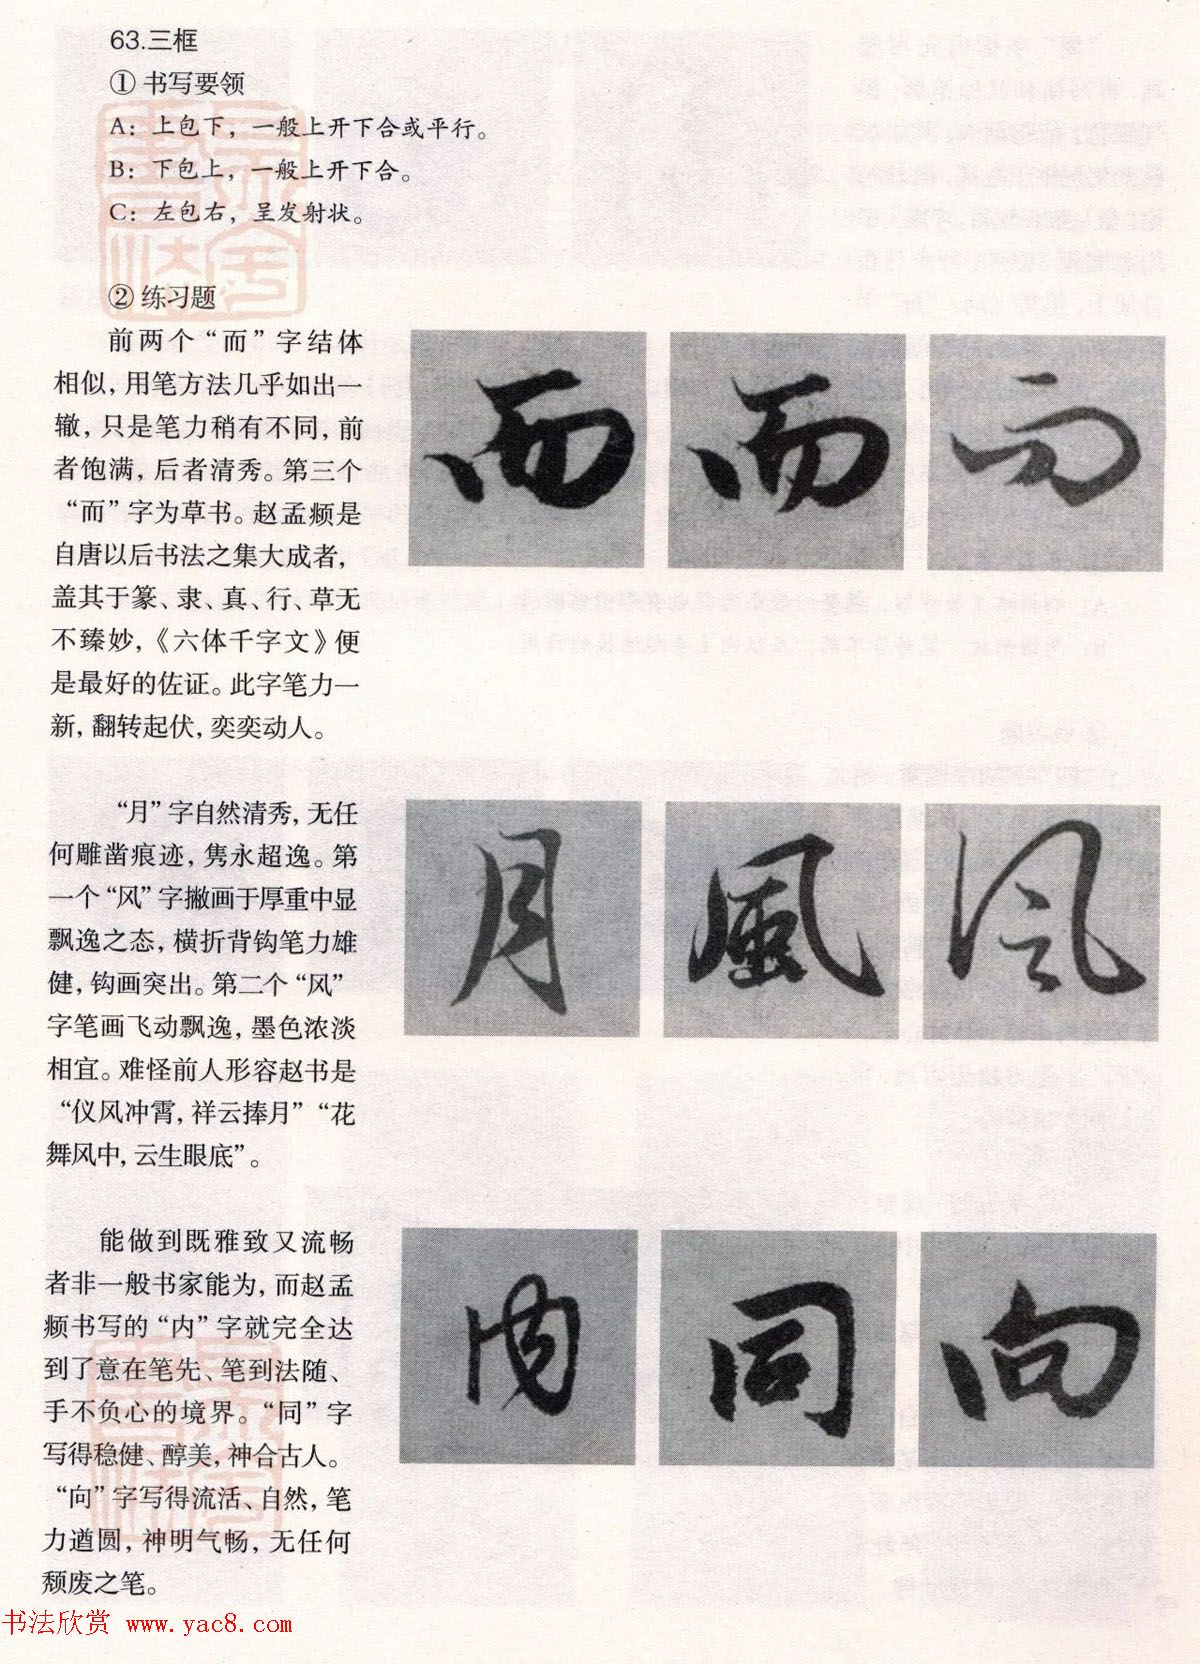 63.三框
① 书写要领
A：上包下，一般上开下合或平行。
B：下包上，一般上开下合。
C：左包右，呈发射状。
② 练习题
前两个“而”字结体
相似，用笔方法几乎如出一
辙，只是笔力稍有不同，前
者饱满，后者清秀。第三个
“而”字为草书。赵孟頫是
自唐以后书法之集大成者，
盖其于篆、隶、真、行、草无
不臻妙，《六体千字文》便
是最好的佐证。此字笔力一
新，翻转起伏，奕奕动人。
而 而 而
“月”字自然清秀，无任
何雕凿痕迹，隽永超逸。第
一个“风”字撇画于厚重中显
飘逸之态，横折背钩笔力雄
健，钩画突出。第二个“风”
字笔画飞动飘逸，墨色浓淡
相宜。难怪前人形容赵书是
“仪风冲霄，祥云捧月”“花
舞风中，云生眼底”。
月 風 风
能做到既雅致又流畅
者非一般书家能为，而赵孟
頫书写的“内”字就完全达
到了意在笔先、笔到法随、
手不负心的境界。“同”字
写得稳健、醇美，神合古人。
“向”字写得流活、自然，笔
力遒圆，神明气畅，无任何
颓废之笔。
内 同 向
书法欣赏 www.yac8.com